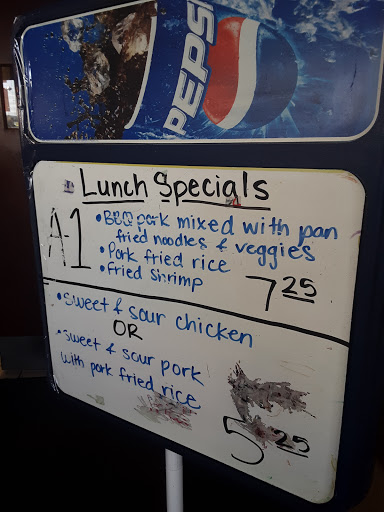 PEPSI
Lunch Specials
A-1
• BBQ pork mixed with pan
fried noodles & veggies
• Pork fried rice
• Fried Shrimp
7 25
• Sweet & sour chicken
OR
• Sweet & sour pork
with pork fried rice
5 25